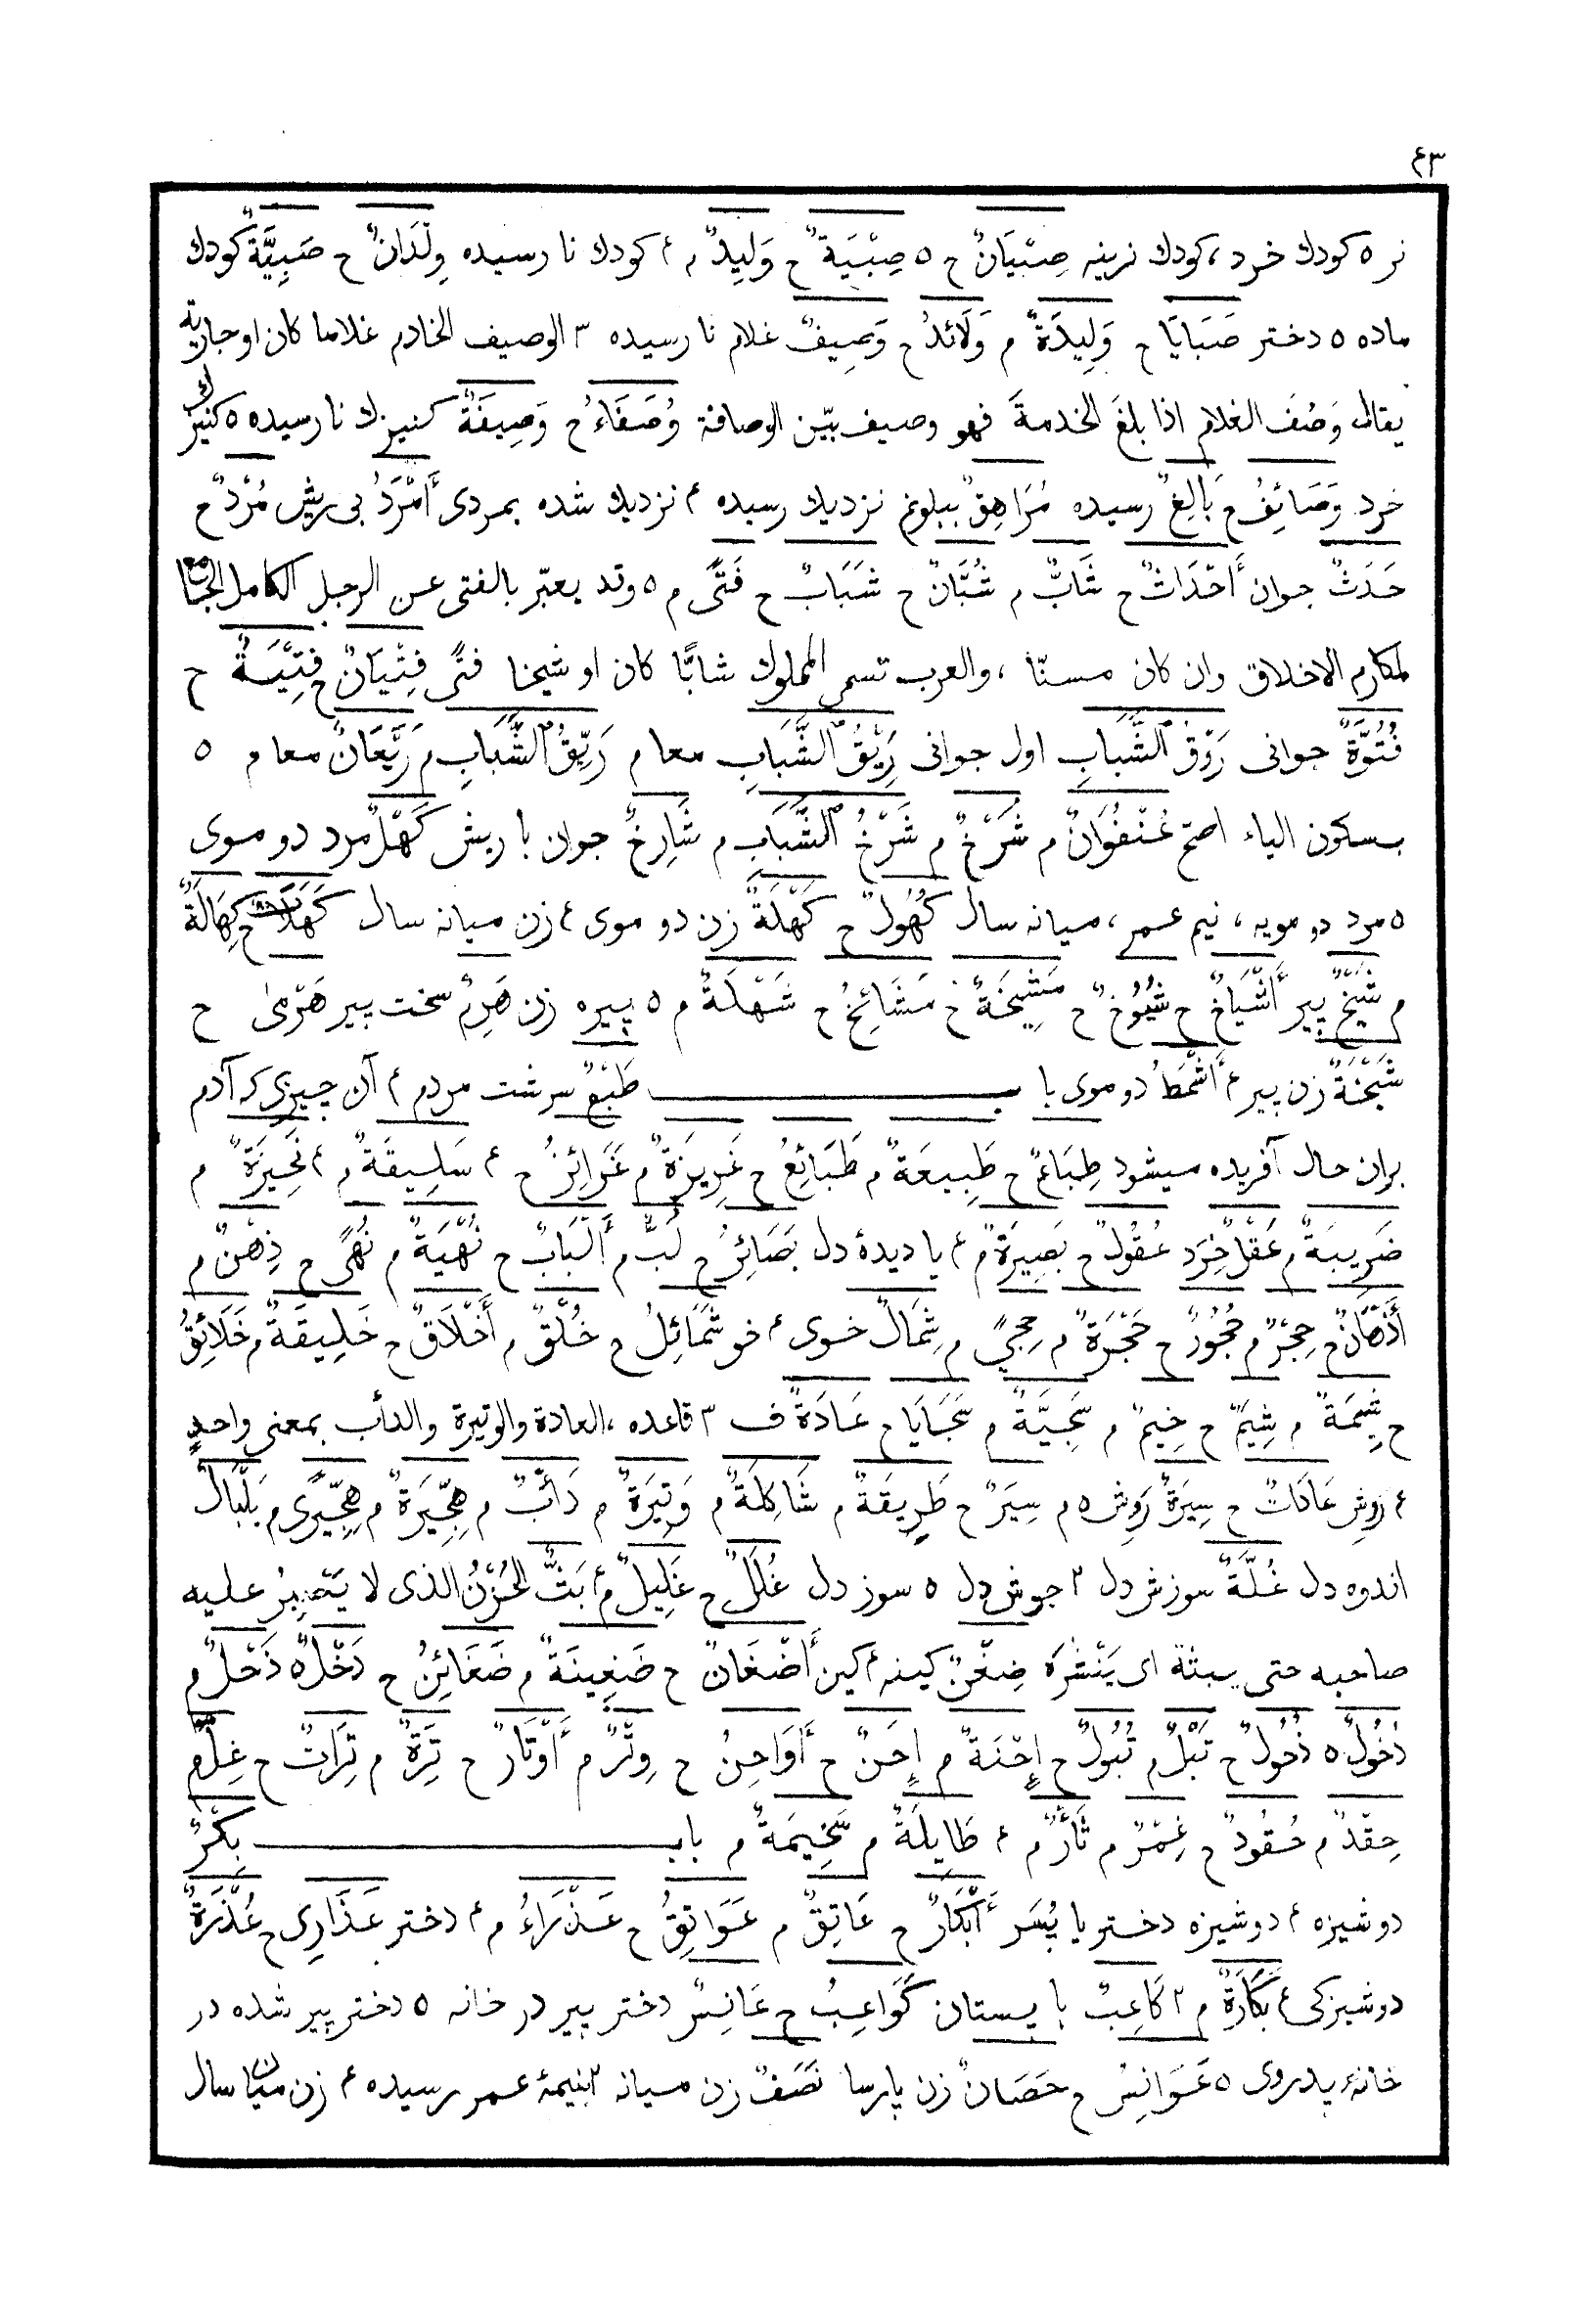 ۴۳
نر ۵ کودك خرد، کودك نرینه صِبْیَانٌ ح ۵ صِبْیَةٌ ح وَلِیدٌ م ۴ کودك نا رسیده وِلْدَانٌ ح صَبِیَّةٌ کودك
ماده ۵ دختر صَبَایَا ح وَلِیدَةٌ م وَلَائدُ ح وَصِیفٌ غلام نا رسیده ۳ الوصیف الخادم غلاما کان او جاریة
یقال وَصُفَ الغلام اذا بلغَ الخدمةَ فهو وصیف بیّن الوصافة وُصَفَاءُ ح وَصِیفَةٌ کنیزك نا رسیده ۵ کنیزك
خرد وَصَائِفُ ح بَالِغٌ رسیده مُرَاهِقٌ ببلوغ نزدیك رسیده ۴ نزدیك شده بمردی أَمْرَدُ بی ریش مُرْدٌ ح
حَدَثٌ جوان أَحْدَاثٌ ح شَابٌّ م شُبَّانٌ ح شَبَابٌ ح فَتًی م ۵ وقد یعبّر بالفتی عن الرجل الکامل الجامع
لمکارم الاخلاق وان کان مسنّا ، والعرب تسمی المملوك شابًّا کان او شیخا فتًی فِتْیَانٌ ح فِتْیَةٌ ح
فُتُوَّةٌ جوانی رَوْقُ الشَّبَابِ اول جوانی رَیْقُ الشَّبَابِ معا م رَیِّقُ الشَّبَابِ م رَیَّعَانٌ معا م ۵
بسکون الیاء اصح عُنْفُوَانٌ م شَرْخٌ م شَرْخُ الشَّبَابِ م شَارِخٌ جوان با ریش کَهْلٌ مرد دو موی
۵ مرد دو مویه ، نیم عمر ، میانه سال کُهُولٌ ح کَهْلَةٌ زن دو موی ۴ زن میانه سال کَهَلَاتٌ ح کِهَالَةٌ
م شَیْخٌ پیر أَشْیَاخٌ ح شُیُوخٌ ح مَشِیخَةٌ ح مَشَائِخُ ح شَهْلَةٌ م ۵ پیره زن هَرِمٌ سخت پیر هَرْمیٰ ح
شَیْخَةٌ زن پیر ۴ أَشْمَطُ دو موی با بـ طَبْعٌ سرشت مردم ۴ آن چیزی که آدم
بران حال آفریده میشود طِبَاعٌ ح طَبِیعَةٌ م طَبَائِعُ ح غَرِیزَةٌ م غَرَائِزُ ح ۴ سَلِیقَةٌ م ۴ نَحِیزَةٌ م
ضَرِیبَةٌ م عَقْلٌ خِرَد عُقُولٌ ح بَصِیرَةٌ م ۴ یا دیدۀ دل بَصَائِرُ ح لُبٌّ م أَلْبَابٌ ح نُهْیَةٌ م نُهًی ح ذِهْنٌ م
أَذْهَانٌ ح حِجْرٌ م حُجُورٌ ح حَجْرَةٌ م حِجیً م شِمَالٌ خوی ۴ خو شَمَائِلُ ح خُلْقٌ م أَخْلَاقٌ ح خَلِیقَةٌ م خَلَائِقُ
ح شِیمَةٌ م شِیَمٌ ح خِیمٌ م سَجِیَّةٌ م سَجَایَا ح عَادَةٌ ف ۳ قاعده ، العادة والوتیرة والدأب بمعنی واحدٍ
۴ روِش عَادَاتٌ ح سِیرَةٌ رَوِش ۵ م سِیَرٌ ح طَرِیقَةٌ م شَاکِلَةٌ م وَتِیرَةٌ م دَأْبٌ م هِجِّیرَةٌ م هِجِّیرَی م بَلْبَالٌ
اندوه دل غُلَّةٌ سوزش دل ۲ جوش دل ۵ سوز دل غُلَلٌ ح غَلِیلٌ م ۴ بَثٌّ الحُزْنُ الذی لا یَصْبِرُ علیه
صاحبه حتی یبثه ای یَنْشُرَهُ ضِغْنٌ کینه ۴ کین أَضْغَانٌ ح ضَغِینَةٌ م ضَغَائِنُ ح دَخْلٌ ۵ ذَحْلٌ م
دُخُولٌ ۵ ذُحُولٌ ح تَبْلٌ م تُبُولٌ ح إِحْنَةٌ م إِحَنٌ ح أَوَاحِنُ ح وِتْرٌ م أَوْتَارٌ ح تِرَةٌ م تِرَاتٌ ح غِلٌّ م
حِقْدٌ م حُقُودٌ ح غِمْرٌ م ثَأْرٌ م ۴ طَایِلَةٌ م سَخِیمَةٌ م باب بِکْرٌ
دوشیزه ۴ دوشیزه دختر یا پُسَر أَبْکَارٌ ح عَاتِقٌ م عَوَاتِقُ ح عَذْرَاءُ م ۴ دختر عَذَارِی ح عُذْرَةٌ
دوشیزکی ۴ بَکَارَةٌ م ۲ کَاعِبٌ با پستان کَوَاعِبُ ح عَانِسٌ دختر پیر در خانه ۵ دختر پیر شده در
خانۀ پدروی ۵ عَوَانِسُ ح حَصَانٌ زن پارسا نَصَفٌ زن میانه ۲ بنیمۀ عمر رسیده ۴ زن میان سال